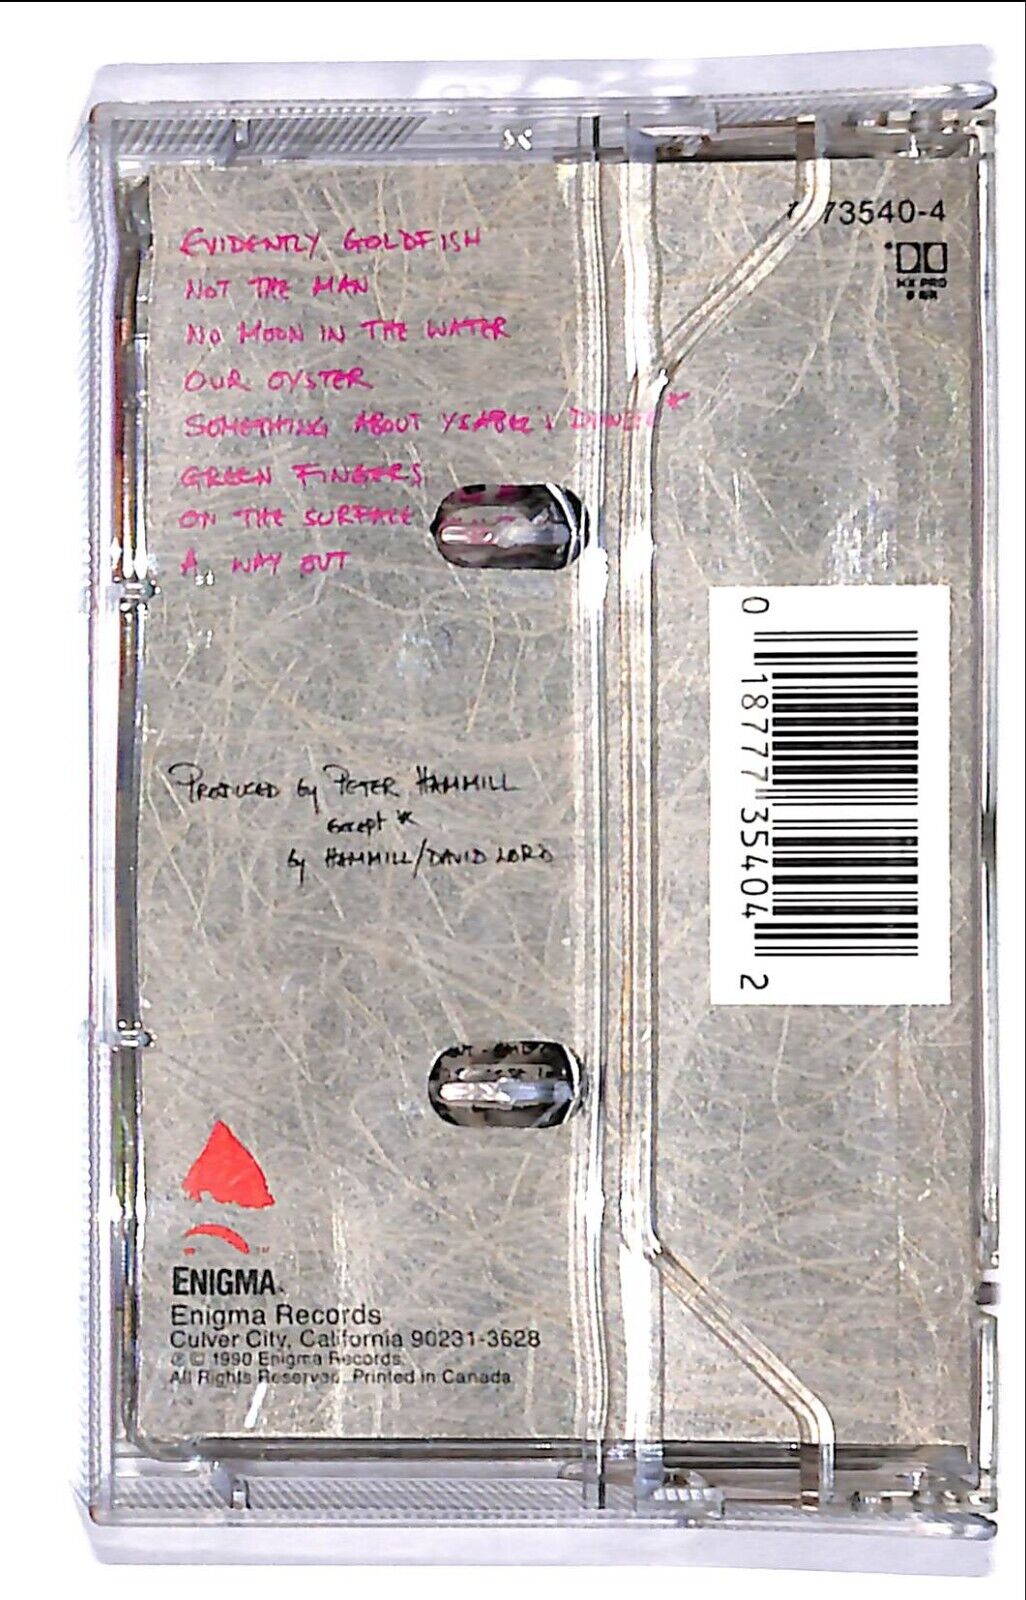 73540-4
HX PRO
B NR
EVIDENTLY GOLDFISH
NOT THE MAN
NO MOON IN THE WATER
OUR OYSTER
SOMETHING ABOUT YSABEL'S DANCE *
GREEN FINGERS
ON THE SURFACE
A WAY OUT
0 18777 35404 2
PRODUCED by PETER HAMMILL
except *
by HAMMILL/DAVID LORD
ENIGMA
Enigma Records
Culver City, California 90231-3628
℗ © 1990 Enigma Records.
All Rights Reserved. Printed in Canada